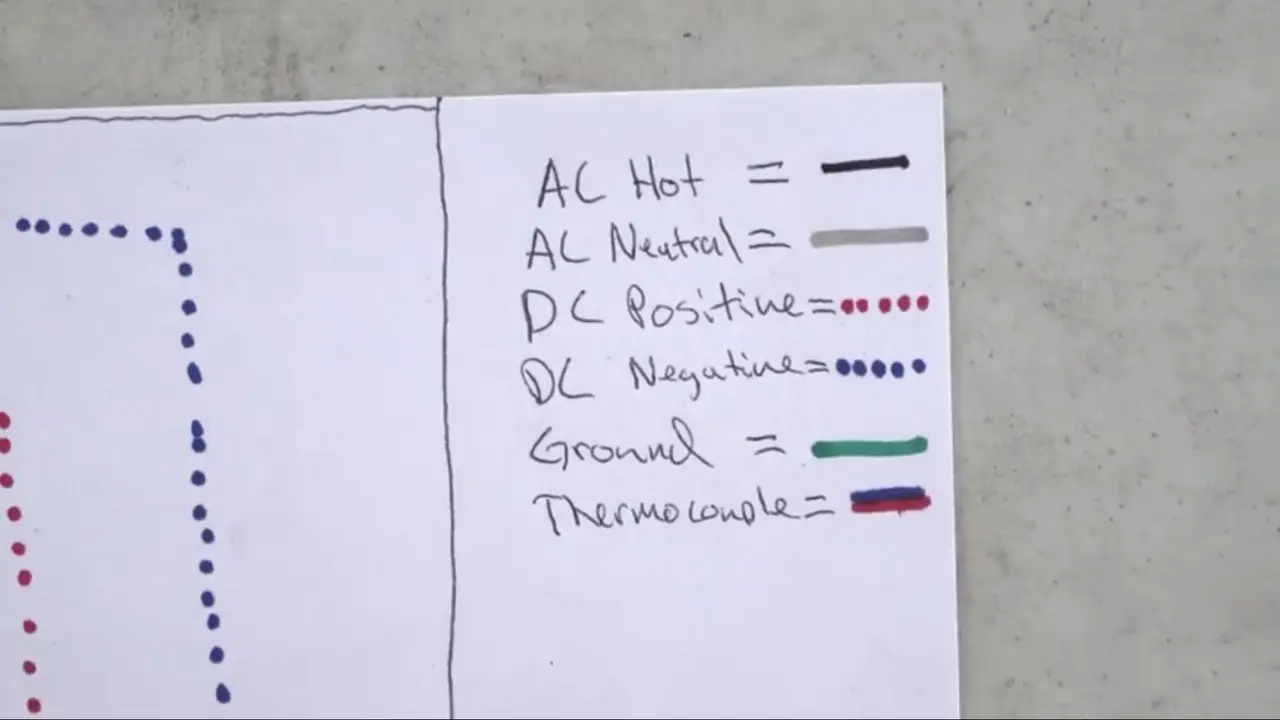 AC Hot =
AC Neutral =
DC Positive =
DC Negative =
Ground =
Thermocouple =